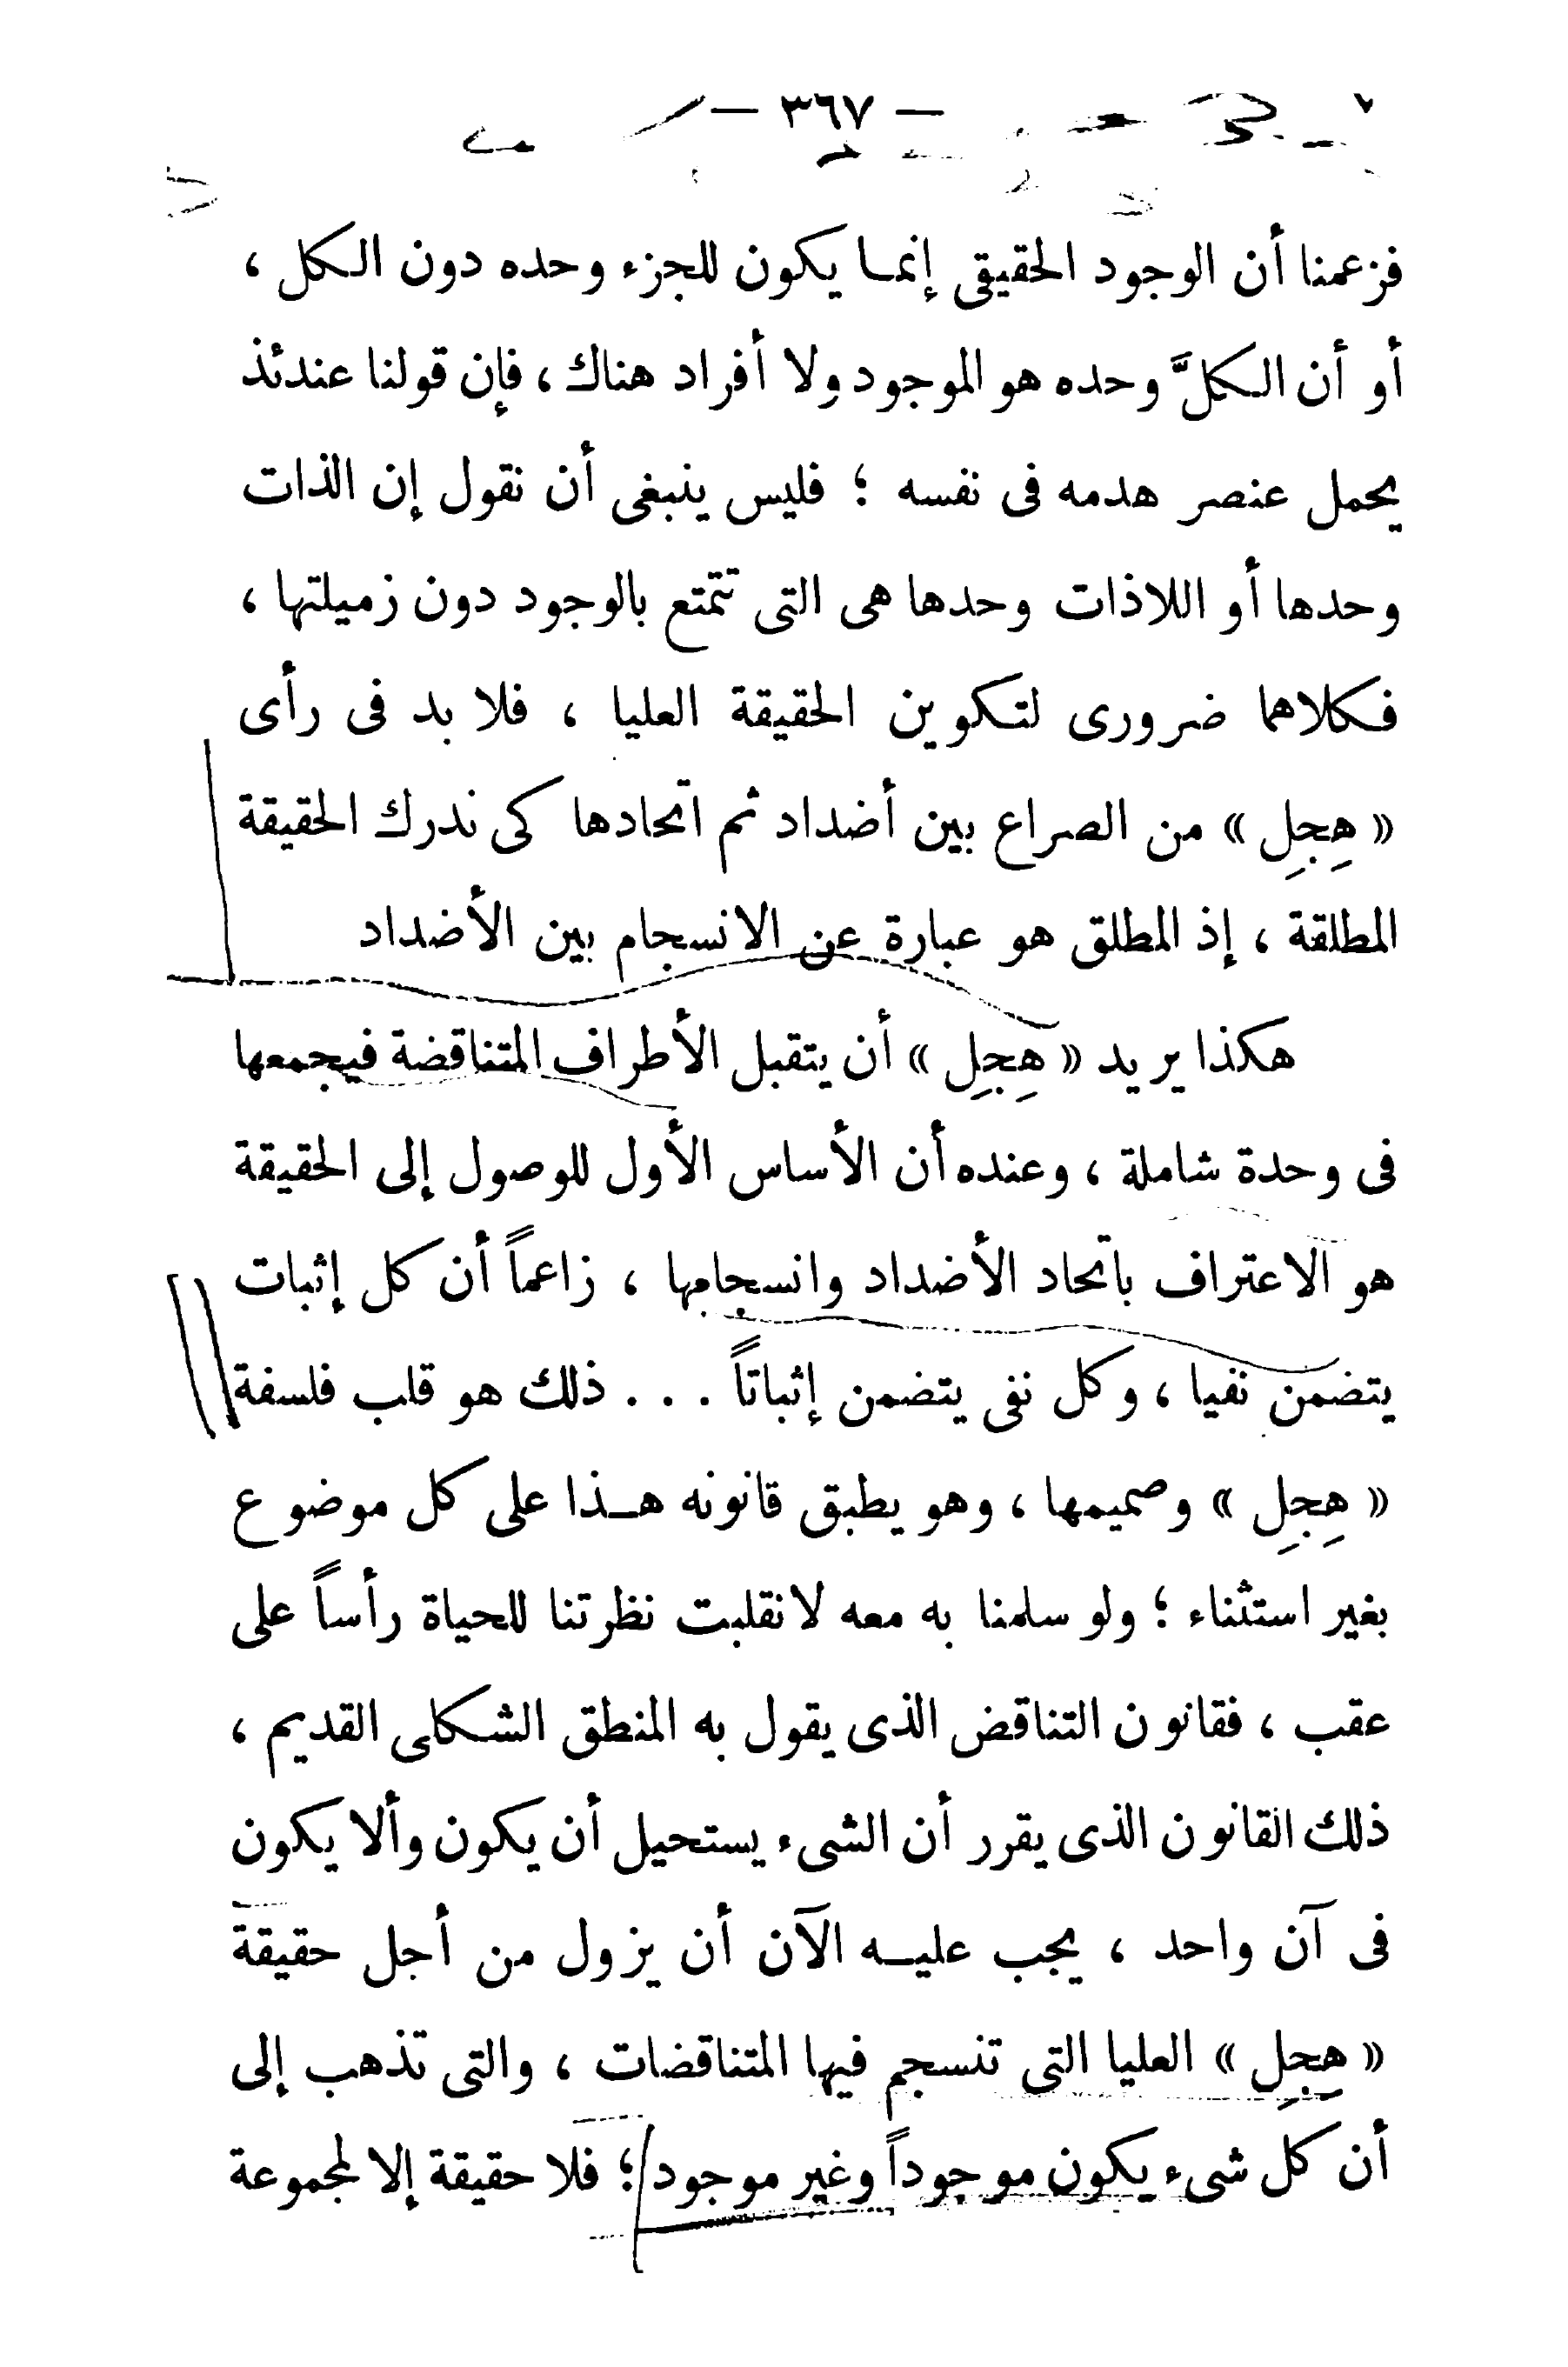 — ٣٦٧ —
فزعمنا أن الوجود الحقيقى إنما يكون للجزء وحده دون الكل ،
أو أن الكلَّ وحده هو الموجود ولا أفراد هناك ، فإن قولنا عندئذ
يحمل عنصر هدمه فى نفسه ؛ فليس ينبغى أن نقول إن الذات
وحدها أو اللاذات وحدها هى التى تتمتع بالوجود دون زميلتها ،
فكلاهما ضرورى لتكوين الحقيقة العليا ، فلا بد فى رأى
« هِجِل » من الصراع بين أضداد ثم اتحادها كى ندرك الحقيقة
المطلقة ، إذ المطلق هو عبارة عن الانسجام بين الأضداد
هكذا يريد « هِجِل » أن يتقبل الأطراف المتناقضة فيجمعها
فى وحدة شاملة ، وعنده أن الأساس الأول للوصول إلى الحقيقة
هو الاعتراف باتحاد الأضداد وانسجامها ، زاعماً أن كل إثبات
يتضمن نفيا ، وكل نفى يتضمن إثباتاً . . . ذلك هو قلب فلسفة
« هِجِل » وصميمها ، وهو يطبق قانونه هذا على كل موضوع
بغير استثناء ؛ ولو سلمنا به معه لانقلبت نظرتنا للحياة رأساً على
عقب ، فقانون التناقض الذى يقول به المنطق الشكلى القديم ،
ذلك القانون الذى يقرر أن الشىء يستحيل أن يكون وألا يكون
فى آن واحد ، يجب عليه الآن أن يزول من أجل حقيقة
« هِجِل » العليا التى تنسجم فيها المتناقضات ، والتى تذهب إلى
أن كل شىء يكون موجوداً وغير موجود ؛ فلا حقيقة إلا لمجموعة